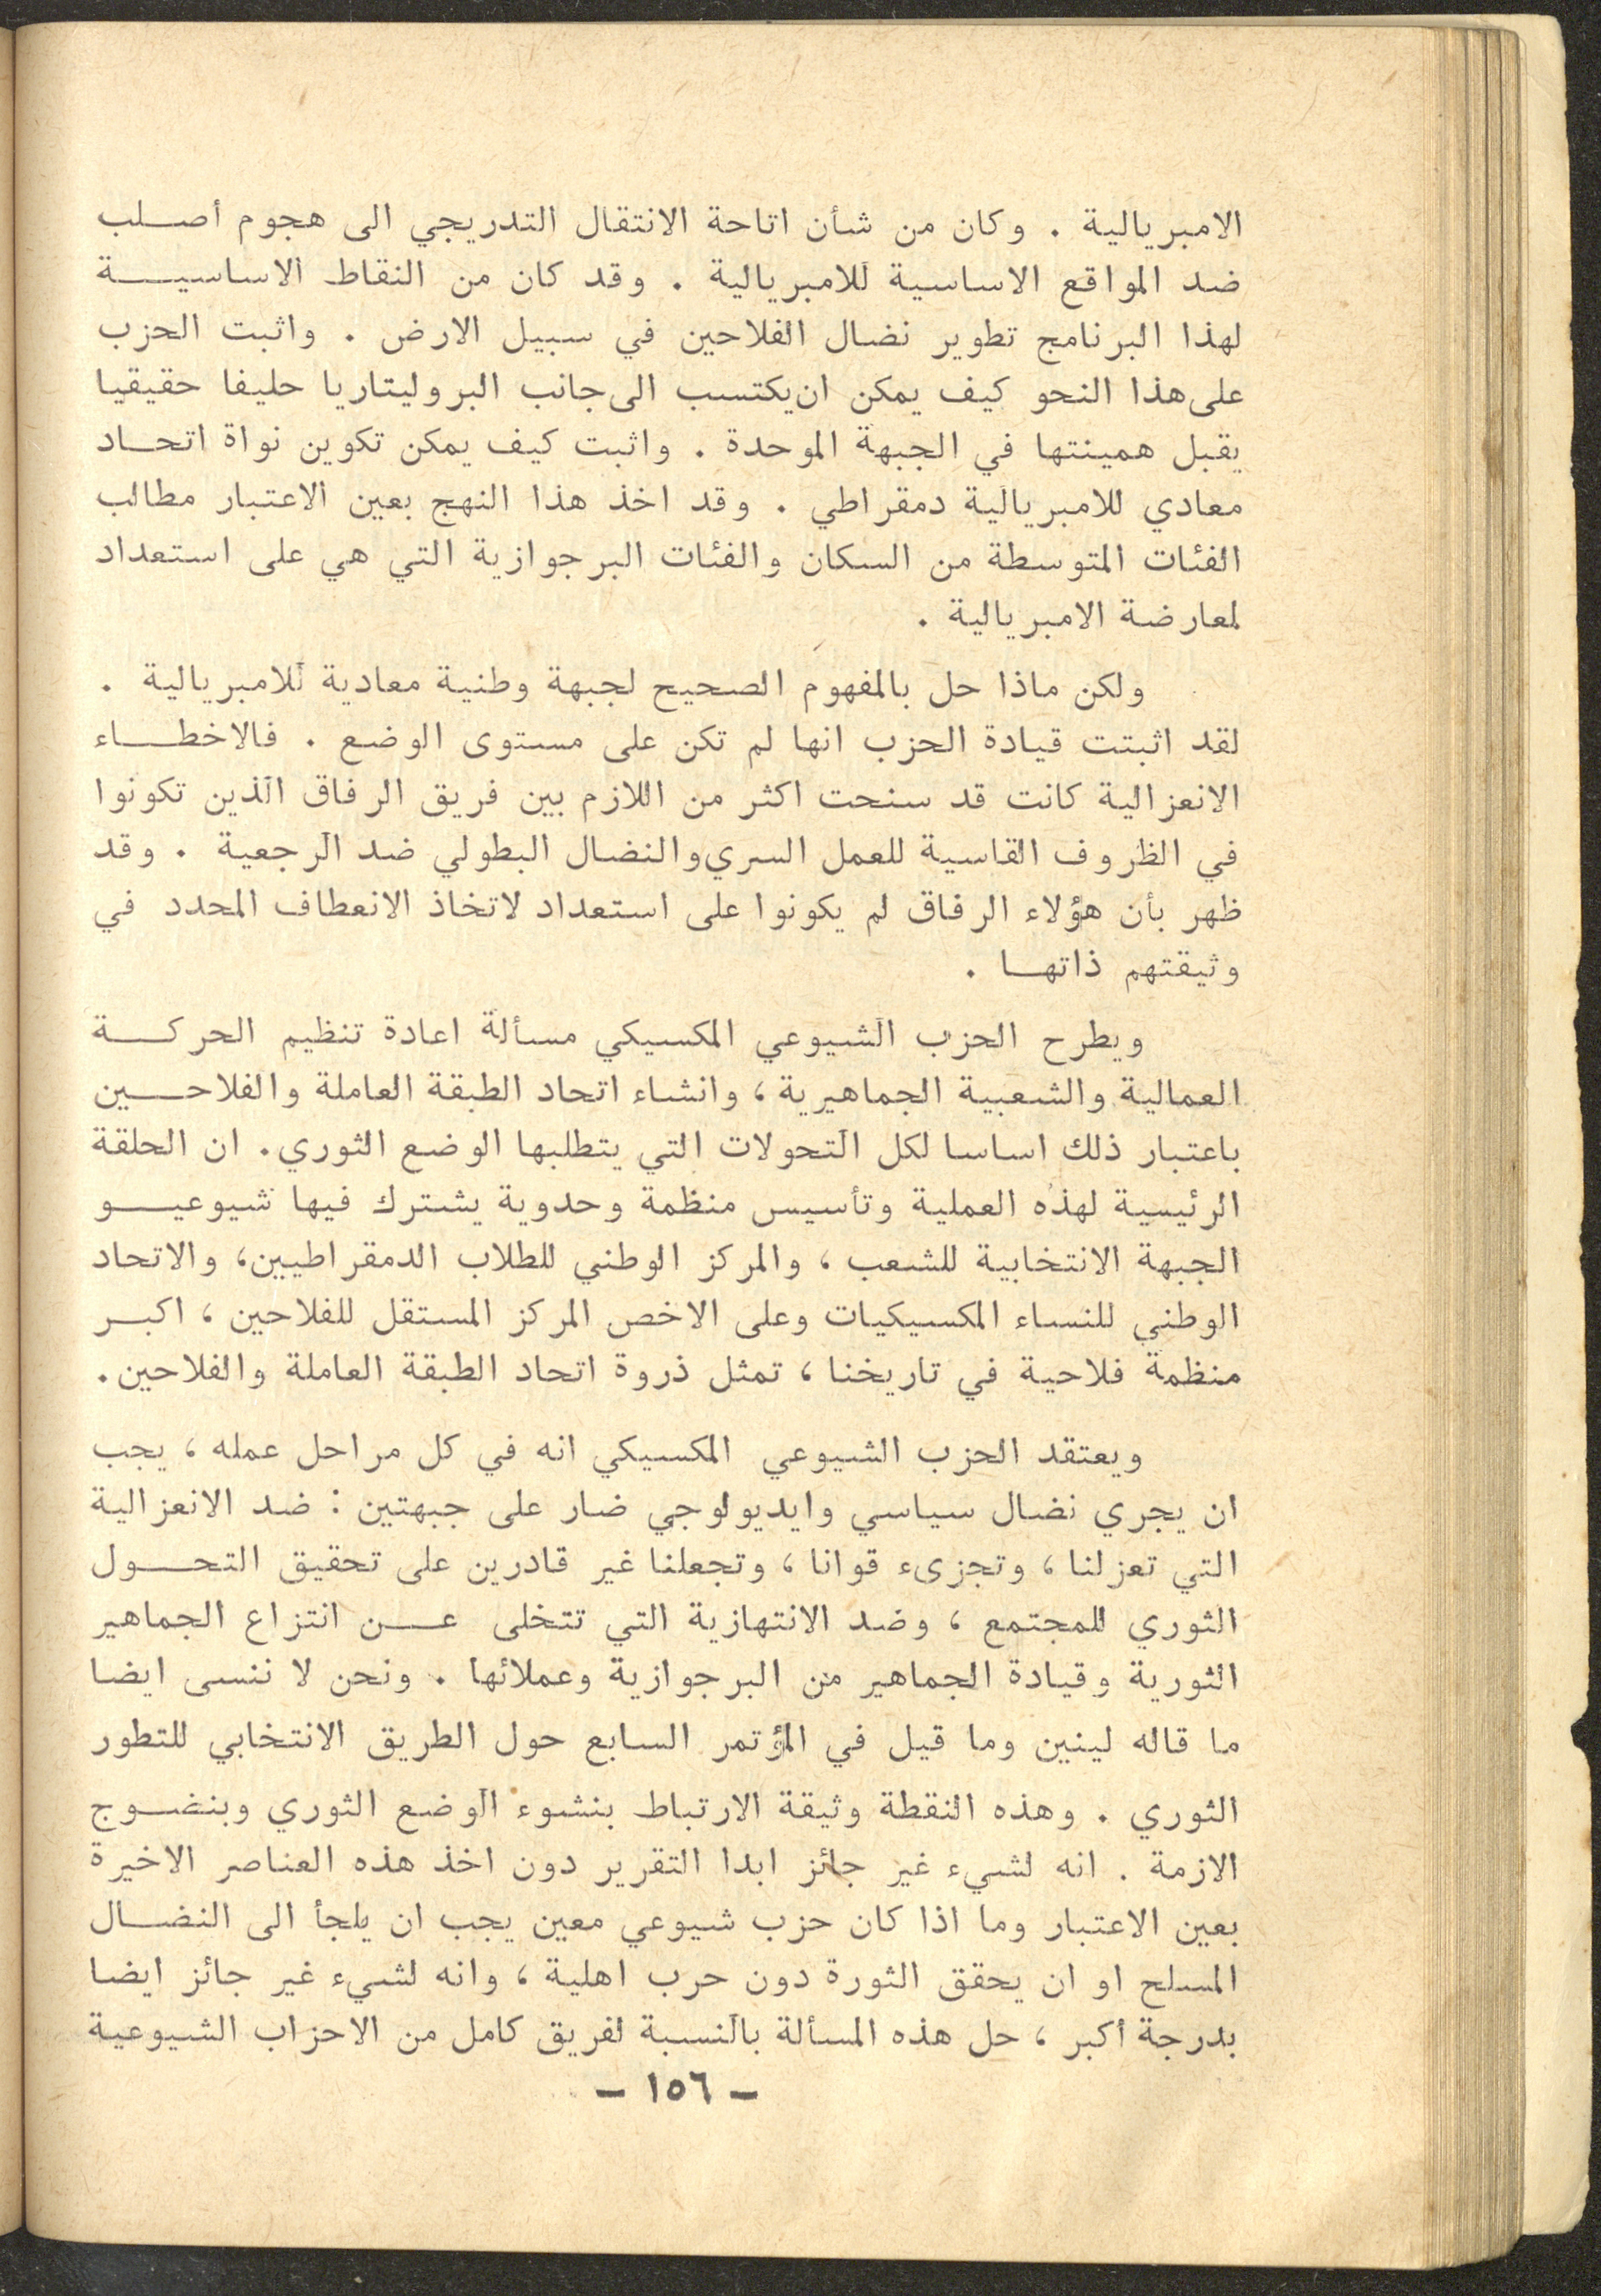 الامبريالية . وكان من شأن اتاحة الانتقال التدريجي الى هجوم أصلب
ضد المواقع الاساسية للامبريالية . وقد كان من النقاط الاساسية
لهذا البرنامج تطوير نضال الفلاحين في سبيل الارض . واثبت الحزب
على هذا النحو كيف يمكن ان يكتسب الى جانب البروليتاريا حليفا حقيقيا
يقبل همينتها في الجبهة الموحدة . واثبت كيف يمكن تكوين نواة اتحاد
معادي للامبريالية دمقراطي . وقد اخذ هذا النهج بعين الاعتبار مطالب
الفئات المتوسطة من السكان والفئات البرجوازية التي هي على استعداد
لمعارضة الامبريالية .
ولكن ماذا حل بالمفهوم الصحيح لجبهة وطنية معادية للامبريالية .
لقد اثبتت قيادة الحزب انها لم تكن على مستوى الوضع . فالاخطاء
الانعزالية كانت قد سنحت اكثر من اللازم بين فريق الرفاق الذين تكونوا
في الظروف القاسية للعمل السري والنضال البطولي ضد الرجعية . وقد
ظهر بأن هؤلاء الرفاق لم يكونوا على استعداد لاتخاذ الانعطاف المحدد في
وثيقتهم ذاتها .
ويطرح الحزب الشيوعي المكسيكي مسألة اعادة تنظيم الحركة
العمالية والشعبية الجماهيرية ، وانشاء اتحاد الطبقة العاملة والفلاحين
باعتبار ذلك اساسا لكل التحولات التي يتطلبها الوضع الثوري . ان الحلقة
الرئيسية لهذه العملية وتأسيس منظمة وحدوية يشترك فيها شيوعيو
الجبهة الانتخابية للشعب ، والمركز الوطني للطلاب الدمقراطيين ، والاتحاد
الوطني للنساء المكسيكيات وعلى الاخص المركز المستقل للفلاحين ، اكبر
منظمة فلاحية في تاريخنا ، تمثل ذروة اتحاد الطبقة العاملة والفلاحين .
ويعتقد الحزب الشيوعي المكسيكي انه في كل مراحل عمله ، يجب
ان يجري نضال سياسي وايديولوجي ضار على جبهتين : ضد الانعزالية
التي تعزلنا ، وتجزىء قوانا ، وتجعلنا غير قادرين على تحقيق التحول
الثوري للمجتمع ، وضد الانتهازية التي تتخلى عن انتزاع الجماهير
الثورية وقيادة الجماهير من البرجوازية وعملائها . ونحن لا ننسى ايضا
ما قاله لينين وما قيل في المؤتمر السابع حول الطريق الانتخابي للتطور
الثوري . وهذه النقطة وثيقة الارتباط بنشوء الوضع الثوري وبنضوج
الازمة . انه لشيء غير جائز ابدا التقرير دون اخذ هذه العناصر الاخيرة
بعين الاعتبار وما اذا كان حزب شيوعي معين يجب ان يلجأ الى النضال
المسلح او ان يحقق الثورة دون حرب اهلية ، وانه لشيء غير جائز ايضا
بدرجة أكبر ، حل هذه المسألة بالنسبة لفريق كامل من الاحزاب الشيوعية
- ١٥٦ -